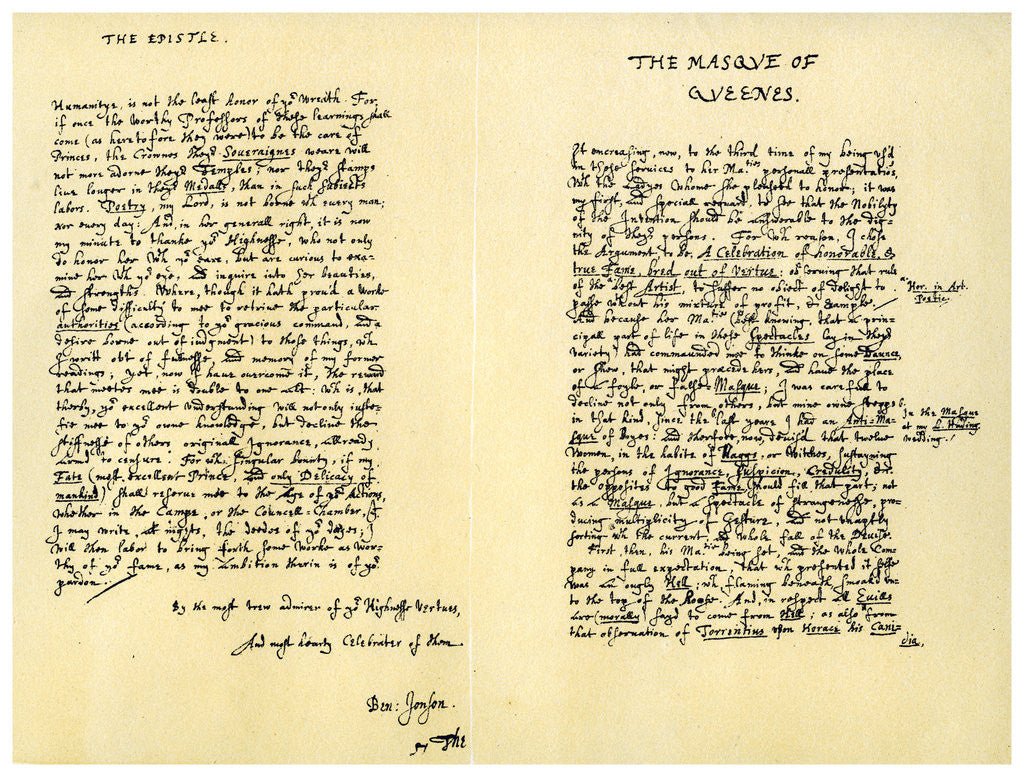 THE EPISTLE.
Humanitye, is not the least honor of yor Wreath. For,
if once the Worthy Professors of these learnings shall
come (as heretofore they were) to be the care of
Princes, the Crownes theyr Soveraignes weare will
not more adorne theyr Temples; nor theyr stamps
live longer in theyr Medalls, than in such subiects
labors. Poetry, my Lord, is not borne wth every man;
Nor every day: And, in her generall right, it is now
my minute to thanke yor Highnesse, who not only
do honor her wth yor eare, but are curious to exa-
mine her wth yor eye, and inquire into her beauties,
and strengths. Where, though it hath prov'd a Worke
of some difficulty to mee to retrive the particular
authorities (according to yor gracious command, and a
desire borne out of iudgment) to those things, wch
I writt out of fullnesse, and memory of my former
readings; Yet, now I have overcome it, the reward
that meetes mee is double to one act: wch is, that
therby, yor excellent understanding will not only iuste-
fie mee to yor owne knowledge, but decline the
stiffnesse of others originall Ignorance, allready
arm'd to censure. For wch singular bounty, if my
Fate (most excellent Prince, and only Delicacy of
mankind) shall reserve mee to the Age of yor Actions,
whether in the Campe, or the Councell-Chamber, yt
I may write, at nights, the deedes of yor dayes; I
will then labor to bring forth some Worke as wor-
thy of yor fame, as my ambition therin is of yor
pardon.
By the most trew admirer of yor Highnesse Vertues,
And most hearty Celebrater of them.
Ben: Jonson.
The
THE MASQVE OF
QVEENES.
It encreasing, now, to the third time of my being us'd
in these services to her Maties personall presentations,
wth the Ladyes whome she pleaseth to honor; it was
my first, and speciall reguard, to see that the Nobility
of the Invention should be answerable to the dig-
nity of theyr persons. For wch reason, I chose
the Argument, to be, A Celebration of honorable, &
true Fame, bred out of Vertue: observing that rule
of the a best Artist, to suffer no obiect of delight to
passe without his mixture of profit, & example.
a Hor. in Art.
Poetic.
And because her Matie (best knowing, that a prin-
cipall part of life in these Spectacles lay in theyr
variety) had commaunded mee to thinke on some Daunce,
or shew, that might præcede hers, and have the place
of a foyle, or false-Masque; I was carefull to
decline not only from others, but mine owne stepps
in that kind, since the b last yeare I had an Anti-Ma-
b. In the Masque
at my L. Hading.
wedding.
sque of Boyes: and therfore, now, devis'd that twelve
Women, in the habite of Haggs, or Witches, sustayning
the persons of Ignorance, Suspicion, Credulity, &c.
the opposites to good Fame, should fill that part; not
as a Masque, but a spectacle of strangenesse, pro-
ducing multiplicity of Gesture, and not unaptly
sorting wth the current, and whole fall of the Devise.
First, then, his Matie being set, and the whole Com-
pany in full expectation, that wch presented it selfe
was an ougly Hell; wch flaming beneath, smoakd un-
to the top of the Roofe. And, in respect all Evills
are (morally) sayd to come from Hell; as also from
that observation of Torrentius upon Horace his Cani-
dia,